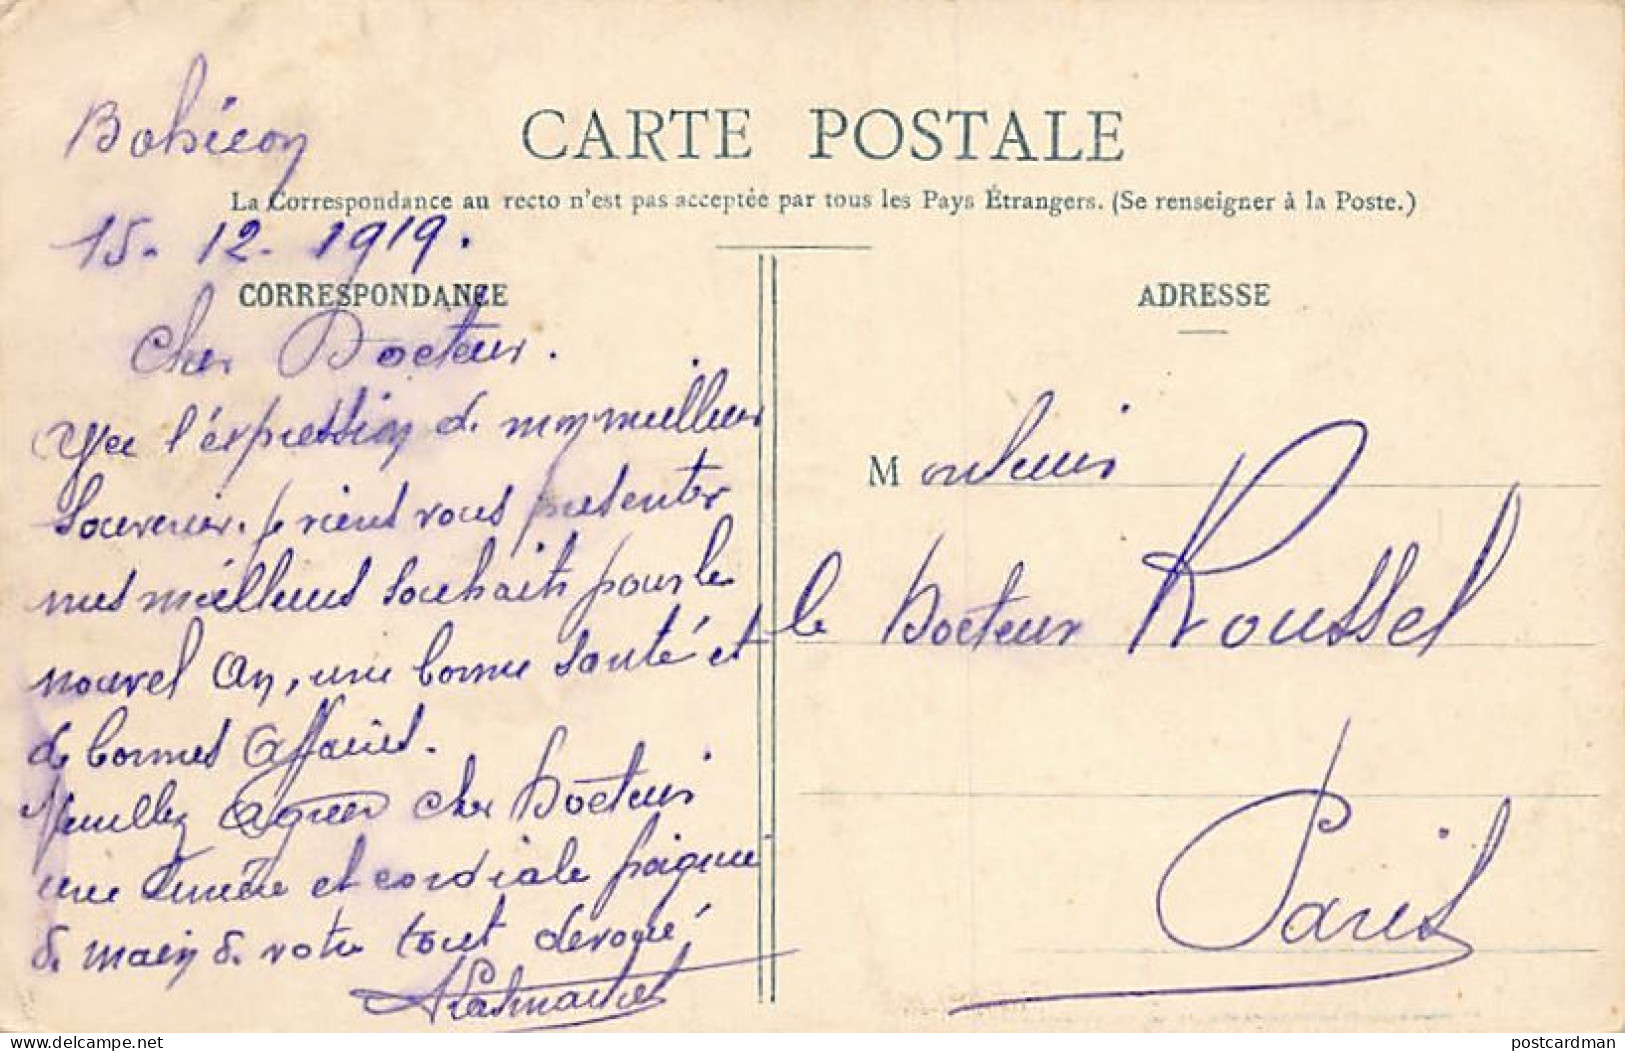 Bohicon
CARTE POSTALE
La Correspondance au recto n'est pas acceptée par tous les Pays Étrangers. (Se renseigner à la Poste.)
15. 12. 1919.
CORRESPONDANCE
ADRESSE
Cher Docteur.
l'expression de mon meilleur
souvenir. je viens vous présenter
mes meilleurs souhaits pour le
nouvel An, une bonne santé et
de bonnes Affaires.
Veuillez Agréer cher Docteur
une sincère et cordiale poignée
de main de votre tout dévoué
Monsieur
le Docteur Roussel
Paris
postcardman